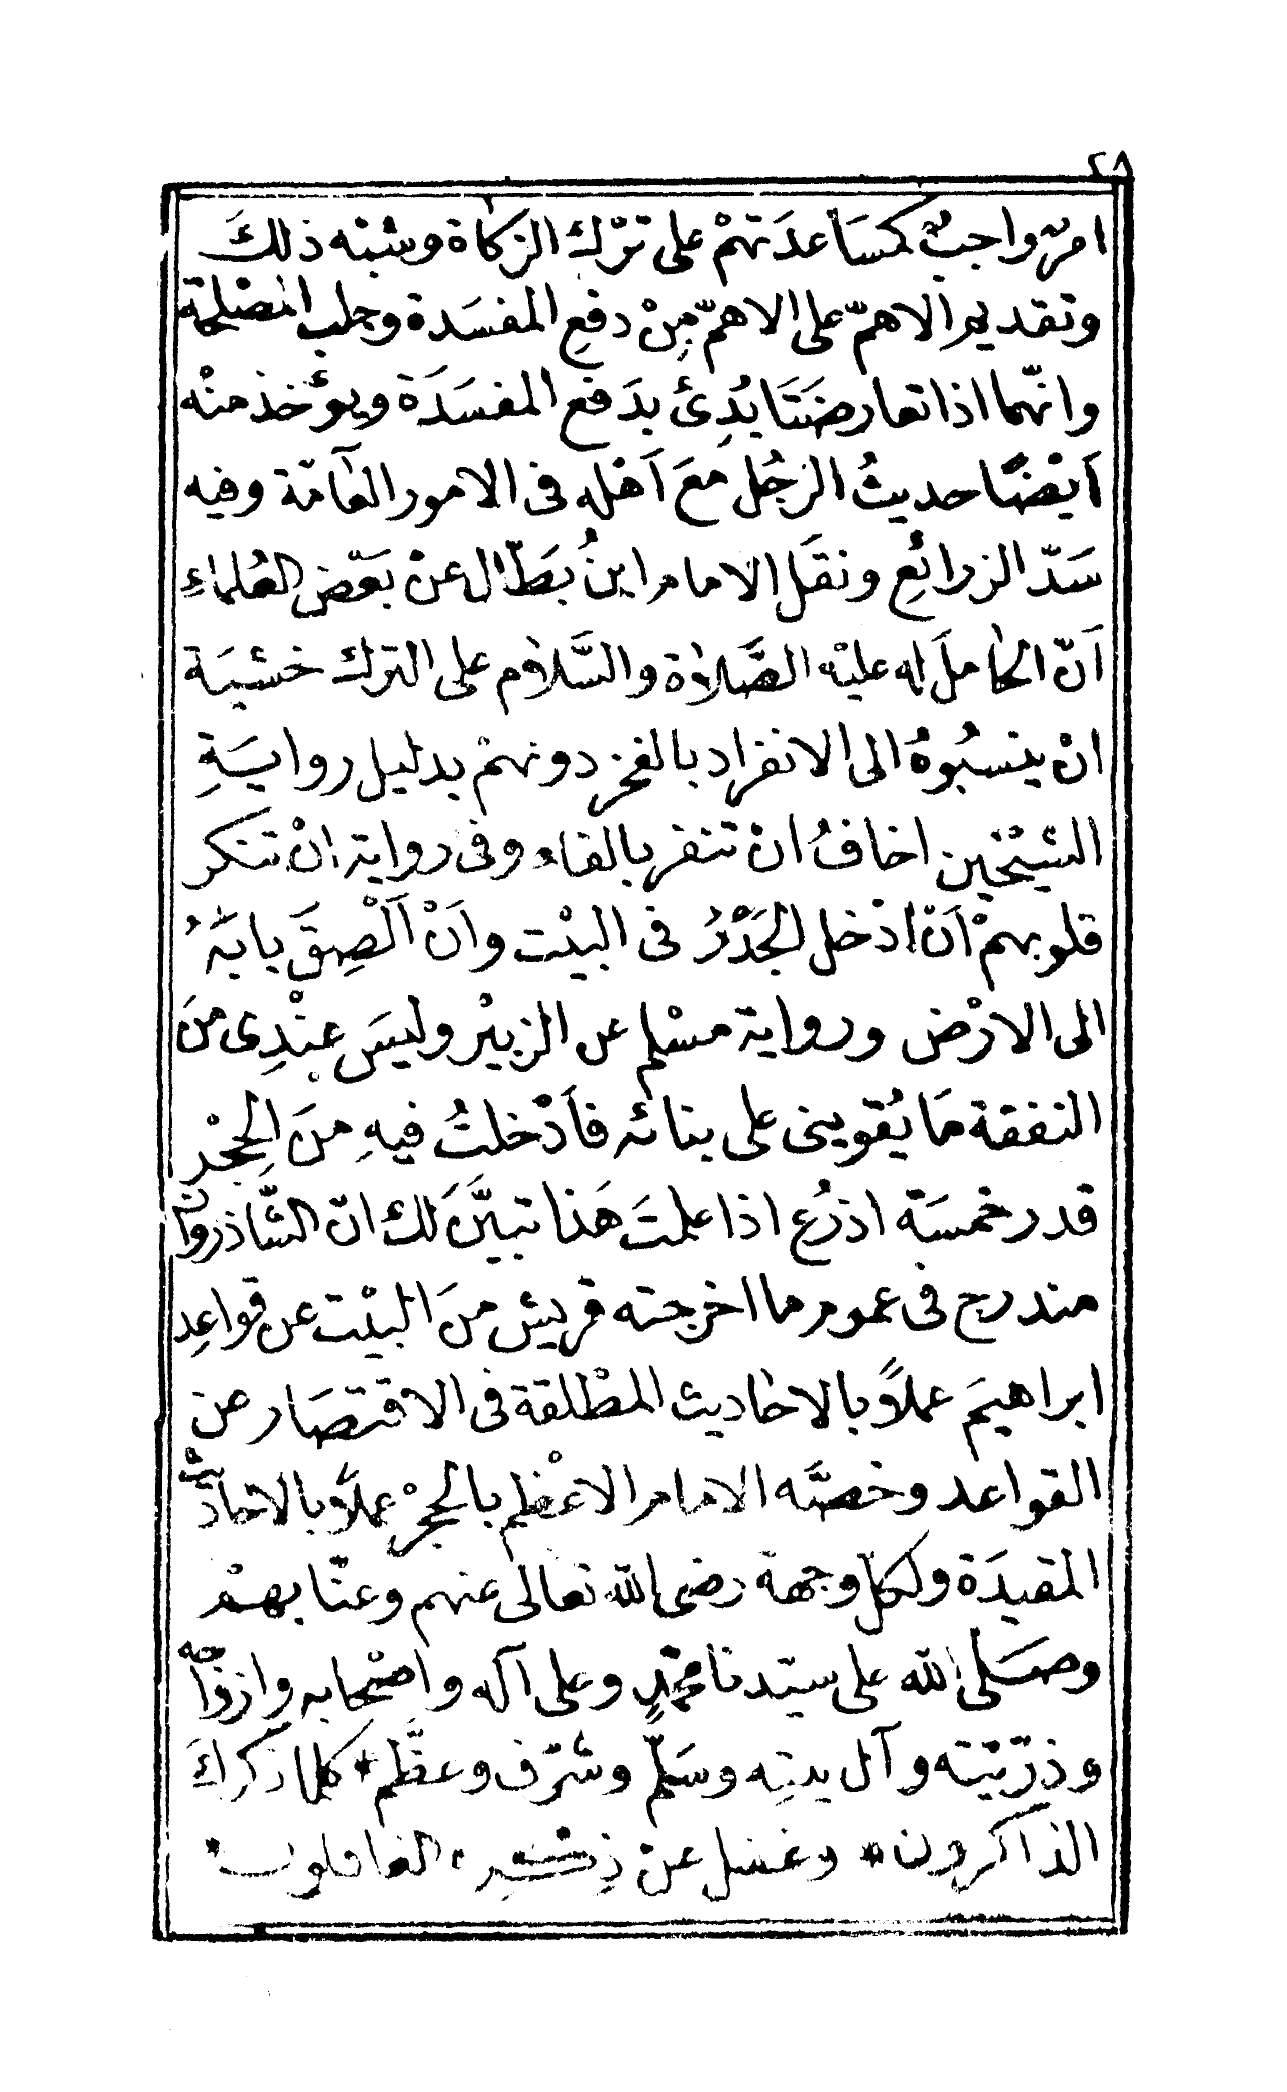 ٢٨
امرٌ واجبٌ كمسَاعدَتهمْ على ترْك الزكاة وشبْه ذلكَ
وتقديم الاهمّ على الاهمّ مِنْ دفعِ المفسَدة وجلب المصْلحة
وانّهما اذا تعارضَتَا بُدِئ بدَفع المفسَدَة ويؤخذ منْه
اَيْضًا حديثُ الرجُل معَ اَهْله فى الامور العَامّة وفيه
سَدّ الزرائعِ ونقَل الامام ابنُ بَطّال عنْ بَعْض العُلماءِ
اَنّ الحَاملَ له عليْه الصَّلاة والسَّلام على الترك خشيَة
انْ ينسبُوهُ الى الانفراد بالفخر دونهمْ بدليل روايَةِ
الشيْخين اخافُ انْ تنفر بالفاء وفى رواية انْ تنكر
قلوبهمْ اَنْ ادْخل الجَدْرُ فى البيْت واَنْ اَلْصِقَ بابَهُ
الى الارْض ورواية مسْلم عن الزبيْر وليسَ عِنْدِى منَ
النفقة مَا يُقوينى على بنائه فاَدْخلتُ فيهِ منَ الحِجْر
قدر خمسَة اذرُع اذا علمتَ هَذا تبيَّنَ لك انّ الشّاذروانَ
مندرج فى عموم ما اخرجته قريش منَ البيْت عن قواعِد
ابراهيمَ عملاً بالاحاديث المطْلقة فى الاقتصَار عن
القواعد وخصَّه الامام الاعْظم بالحجرْ عملاً بالاحاديْث
المقيدَة ولكل وجهة رضى الله تعالى عنهم وعنّا بهمْ
وصَلى الله على سيّدنا محمّدٍ وعلى آله واصْحابه وازوَاجه
وذرّيّته وآل بيتِه وسَلّم وشرّف وعظّم * كلما ذكركَ
الذاكرون * وغفل عنْ ذِكْرِه * الغافلون *